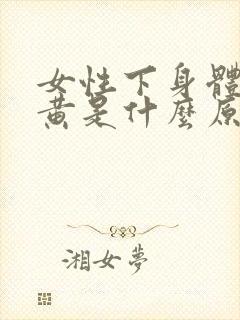 女性下身體
黃是什麼原
湘女夢